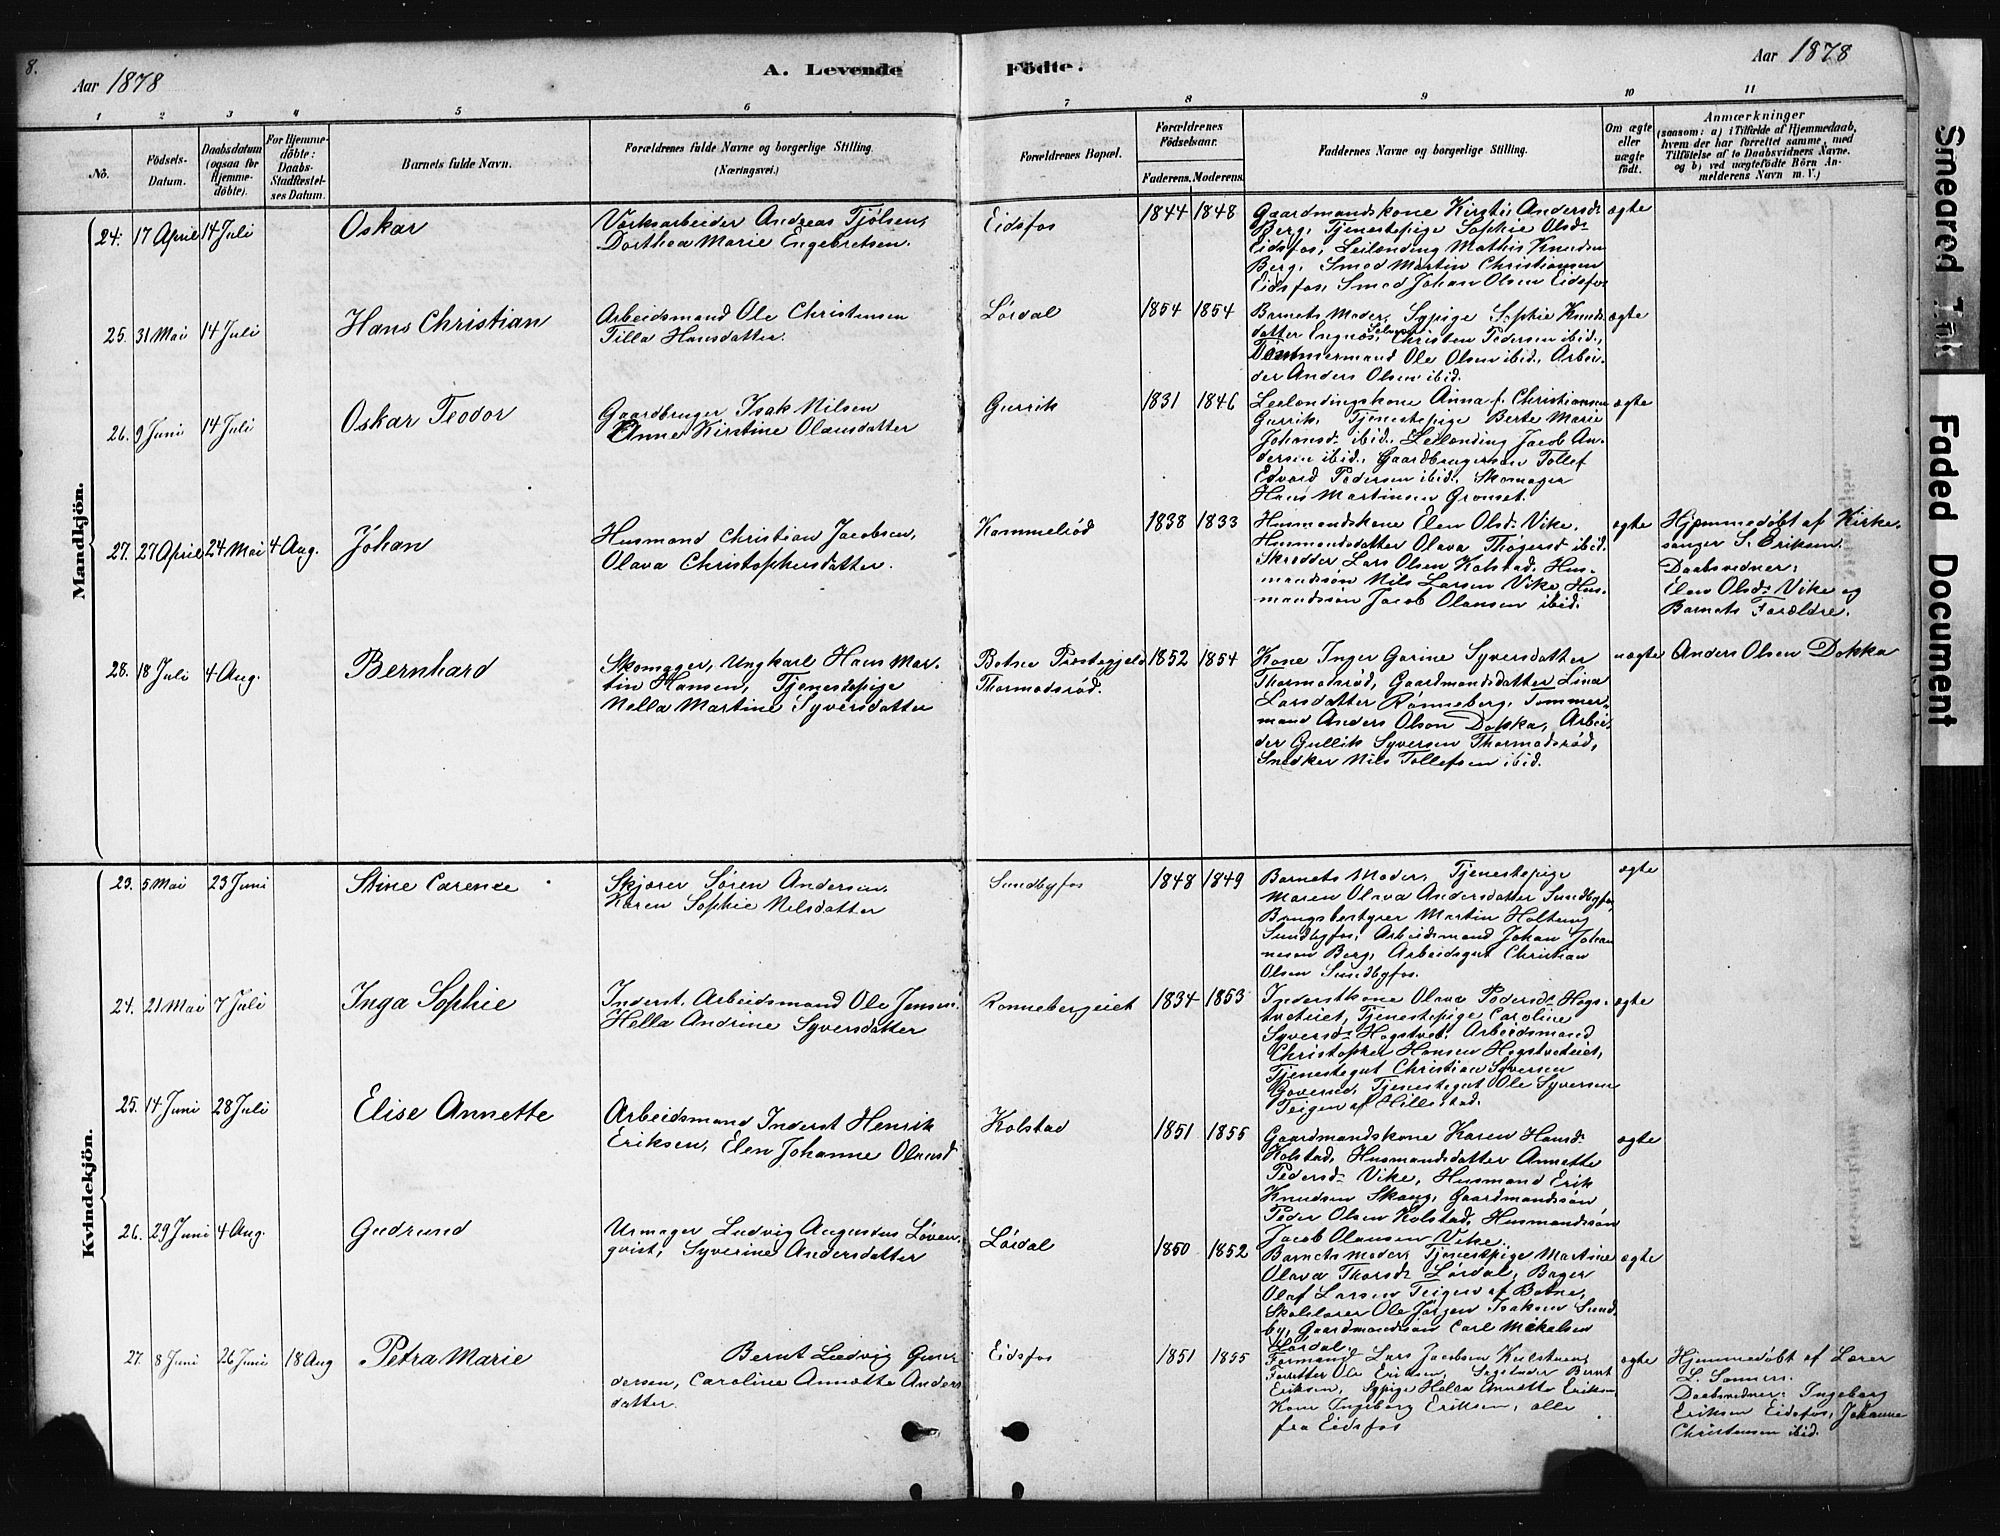 8.
Aar 1878
A. Levende Födte.
Aar 1878
1 2 3 4 5 6 7 8 9 10 11
No.
Födsels-Datum.
Daabsdatum (ogsaa for Hjemmedöbte).
For Hjemmedöbte: Daabs-Stadfæstelses Datum.
Barnets fulde Navn.
Forældrenes fulde Navne og borgerlige Stilling.
(Næringsvei.)
Forældrenes Bopæl.
Forældrenes Födselsaar.
Faderens. Moderens.
Faddernes Navne og borgerlige Stilling.
Om ægte eller uægte födt.
Anmærkninger
(saasom: a) i Tilfælde af Hjemmedaab, hvem der har forrettet samme, med Tilföielse af to Daabsvidners Navne. og b) ved uægtefödte Börn Anmelderens Navn m. V.)
Mandkjön.
24. 17 April 14 Juli
Oskar
Værksarbeider Andreas Tjølsen,
Dorthea Marie Engebretsen.
Eidsfos
1844 1848
Gaardmandskone Kirsti Andersd:
Berg, Tjenestepige Sophie Olsd:
Eidsfos, Leilænding Mathis Knudsen
Berg, Smed Martin Christiansen
Eidsfos, Smed Johan Olsen Eidsfos
ægte
25. 31 Mai 14 Juli
Hans Christian
Arbeidsmand Ole Christensen
Tilla Hansdatter.
Lørdal
1854 1854
Barnets Moder, Sypige Sophie Knuds
datter Engnæs, Christen Pedersen ibid.,
Tømmermand Ole Olsen ibid. Arbei-
der Anders Olsen ibid.
ægte
26. 9 Juni 14 Juli
Oskar Teodor
Gaardbruger Isak Nilsen
Anne Kirstine Olausdatter
Gurrik
1831 1846
Leilændingskone Anna f. Christiansen
Gurrik, Tjenestepige Berte Marie
Johansd: ibid. Leilænding Jacob An-
dersen ibid., Gaardbrugersøn Tollef
Edvard Pedersen ibid. Skomager
Hans Martinsen Grønset.
ægte
27. 27 April 24 Mai 4 Aug.
Johan
Husmand Christian Jacobsen,
Olava Christophersdatter.
Kommelrød
1838 1833
Husmandskone Elen Olsd: Vike.
Husmandsdatter Olava Thøgersd: ibid.
Skrædder Lars Olsen Kolstad, Hus-
mandssøn Nils Larsen Vike, Hus-
mandssøn Jacob Olausen ibid.
ægte
Hjemmedøbt af Kirke-
sanger S. Eriksen.
Daabsvidner:
Elen Olsd: Vike og
Barnets Forældre.
28. 18 Juli 4 Aug.
Bernhard
Skomager, Ungkarl Hans Mar-
tin Hansen, Tjenestepige
Nella Martine Syversdatter
Botne Præstegjeld
Thormodsrød.
1852 1854
Kone Inger Gorine Syversdatter
Thormodsrød, Gaardmandsdatter Lina
Larsdatter Rønneberg, Tømmer-
mand Anders Olsen Dokka, Arbei-
der Gullik Syversen Thormodsrød,
Snedker Nils Tollefsen ibid.
uægte
Anders Olsen Dokka
Kvindekjön.
23. 5 Mai 23 Juni
Stine Carence
Skjærer Søren Andersen,
Karen Sophie Nilsdatter
Sundbyfos
1848 1849
Barnets Moder, Tjenestepige
Maren Olava Andersdatter Sundbyfos,
Brugsbestyrer Martin Holtung
Sundbyfos, Arbeidsmand Johan Johan
nesen Berg, Arbeidsgut Christian
Olsen Sundbyfos.
ægte
24. 21 Mai 7 Juli
Inga Sophie
Inderst, Arbeidsmand Ole Jensen.
Hella Andrine Syversdatter
Rønnebergeiet
1834 1853
Inderstkone Olava Pedersd: Hogs-
tveteiet, Tjenestepige Caroline
Syversd: Hogstvet, Arbeidsmand
Christopher Hansen Hogstveteiet,
Tjenestegut Christian Syversen
Tjenestegut Ole Syversen
Teigen af Hillestad.
ægte
25. 14 Juni 28 Juli
Elise Annette
Arbeidsmand Inderst Henrik
Eriksen, Elen Johanne Olausd
Kolstad
1851 1855
Gaardmandskone Karen Hansd:
Kolstad, Husmandsdatter Annette
Pedersd: Vike, Husmand Erik
Knudsen Skaug, Gaardmandssøn
Peder Olsen Kolstad, Husmandssøn
Jacob Olausen Vike.
ægte
26. 29 Juni 4 Aug.
Gudrund
Urmager Ludvig Augustus Løven-
qvist, Syverine Andersdatter
Lørdal
1850 1852
Barnets Moder, Tjenestepige Martine
Olava Thorsd: Lørdal, Bager
Olaf Larsen Teigen af Botne,
Skolelærer Ole Jørgen Isaksen Sund-
by, Gaardmandssøn Carl Mikalsen
Lørdal
ægte
27. 8 Juni 26 Juni 18 Aug
Petra Marie
Bernt Ludvig Gun-
dersen, Caroline Annette Anders
datter.
Eidsfos
1851 1855
Formand Lars Jacobsen
Forretter Ole Eriksen, Bernt
Eriksen, Sypige Hella Annette Eriksen
Kone Ingeborg Eriksen, alle
fra Eidsfos
ægte
Hjemmedøbt af Lærer
L. Sanners.
Daabsvidner: Ingeborg
Eriksen Eidsfos, Johanne
Christensen ibid.
Smeared Ink
Faded Document